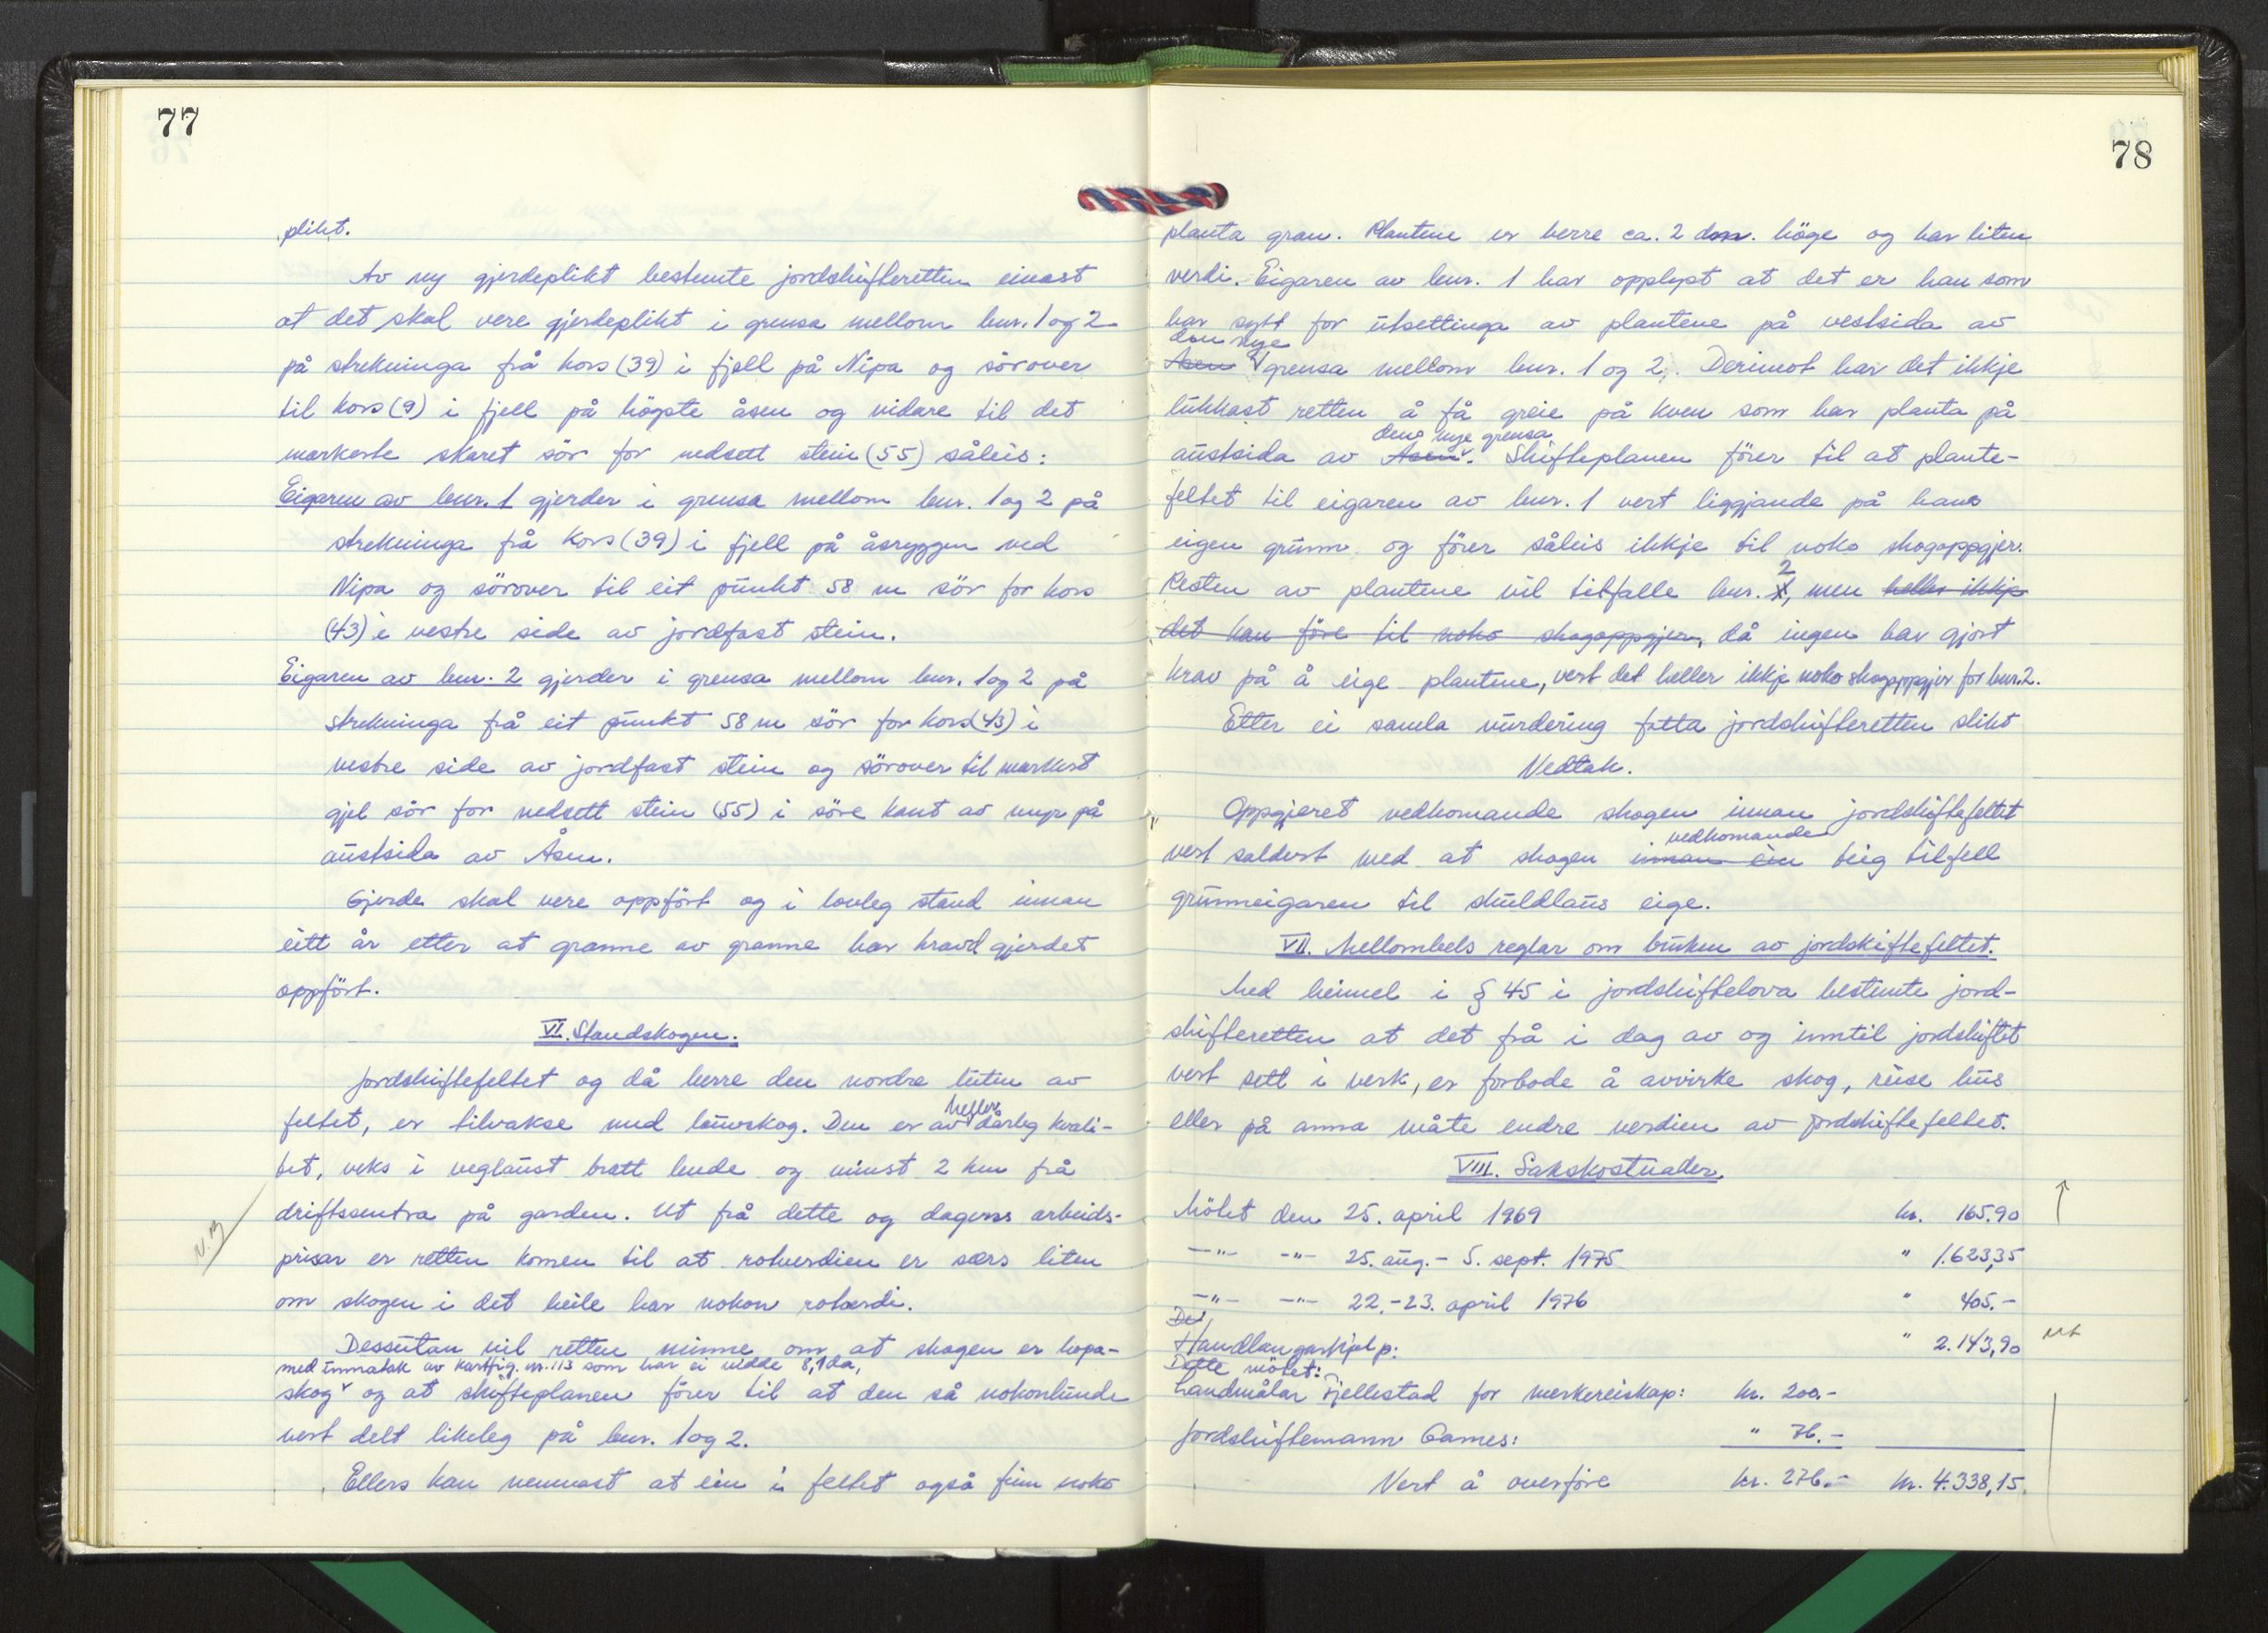 77
plikt.
Av ny gjerdeplikt bestemte jordskifteretten einast
at det skal vere gjerdeplikt i grensa mellom bnr. 1 og 2
på strekninga frå kors (39) i fjell på Nipa og sörover
til kors (9) i fjell på högste åsen og vidare til det
markerte skaret sör for nedsett stein (55) såleis:
Eigaren av bnr. 1 gjerder i grensa mellom bnr. 1 og 2 på
strekninga frå kors (39) i fjell på åsryggen ved
Nipa og sörover til eit punkt 58 m sör for kors
(43) i vestre side av jordfast stein.
Eigaren av bnr. 2 gjerder i grensa mellom bnr. 1 og 2 på
strekninga frå eit punkt 58 m sör for kors (43) i
vestre side av jordfast stein og sörover til markert
gjel sör for nedsett stein (55) i söre kant av myr på
austsida av Åsen.
Gjerde skal vere oppfört og i lovleg stand innan
eitt år etter at granne av granne har kravd gjerdet
oppfört.
VI. Standskogen.
Jordskiftefeltet og då berre den nordre luten av
heller
feltet, er tilvakse med lauvskog. Den er av dårleg kvali-
tet, veks i veglaust bratt lende og minst 2 km frå
driftssentra på garden. Ut frå dette og dagens arbeids-
N.B
prisar er retten komen til at rotverdien er særs liten
om skogen i det heile har nokon rotverdi.
Dessutan vil retten minne om at skogen er hopa-
med unnatak av kartfig. nr. 113 som har ei vidde 8,1 da,
skog og at skifteplanen förer til at den så nokonlunde
vert delt likeleg på bnr. 1 og 2.
Ellers kan nemnast at ein i feltet også finn noko
78
planta gran. Plantene er berre ca. 2 dm. höge og har liten
verdi. Eigaren av bnr. 1 har opplyst at det er han som
har sytt for utsettinga av plantene på vestsida av
den nye
Åsen grensa mellom bnr. 1 og 2. Derimot har det ikkje
lukkast retten å få greie på kven som har planta på
den nye grensa
austsida av Åsen. Skifteplanen förer til at plante-
feltet til eigaren av bnr. 1 vert liggjande på hans
eigen grunn og förer såleis ikkje til noko skogoppgjer.
2
Resten av plantene vil tilfalle bnr. 1, men heller ikkje
det kan före til noko skogoppgjer, då ingen har gjort
krav på å eige plantene, vert det heller ikkje noko skogoppgjer for bnr. 2.
Etter ei samla vurdering fatta jordskifteretten slikt
Vedtak.
Oppgjeret vedkomande skogen innan jordskiftefeltet
vedkomande
vert saldert med at skogen innan ein teig tilfell
grunneigaren til skuldlaus eige.
VII. Mellombels reglar om bruken av jordskiftefeltet.
Med heimel i § 45 i jordskiftelova bestemte jord-
skifteretten at det frå i dag av og inntil jordskiftet
vert sett i verk, er forbode å avvirke skog, reise hus
eller på anna måte endre verdien av jordskiftefeltet.
VIII. Sakskostnader.
Mötet den 25. april 1969 kr. 165.90
-"- -"- 25. aug. - 5. sept. 1975 " 1.623,35
-"- -"- 22.-23. april 1976 " 405.-
Det
Handlangarhjelp: " 2.143,90
Dette mötet:
Landmålar Fjellestad for merkereiskap: kr. 200.-
Jordskiftemann Oames: " 76.-
Vert å overföre kr. 276.- kr. 4.338,15.